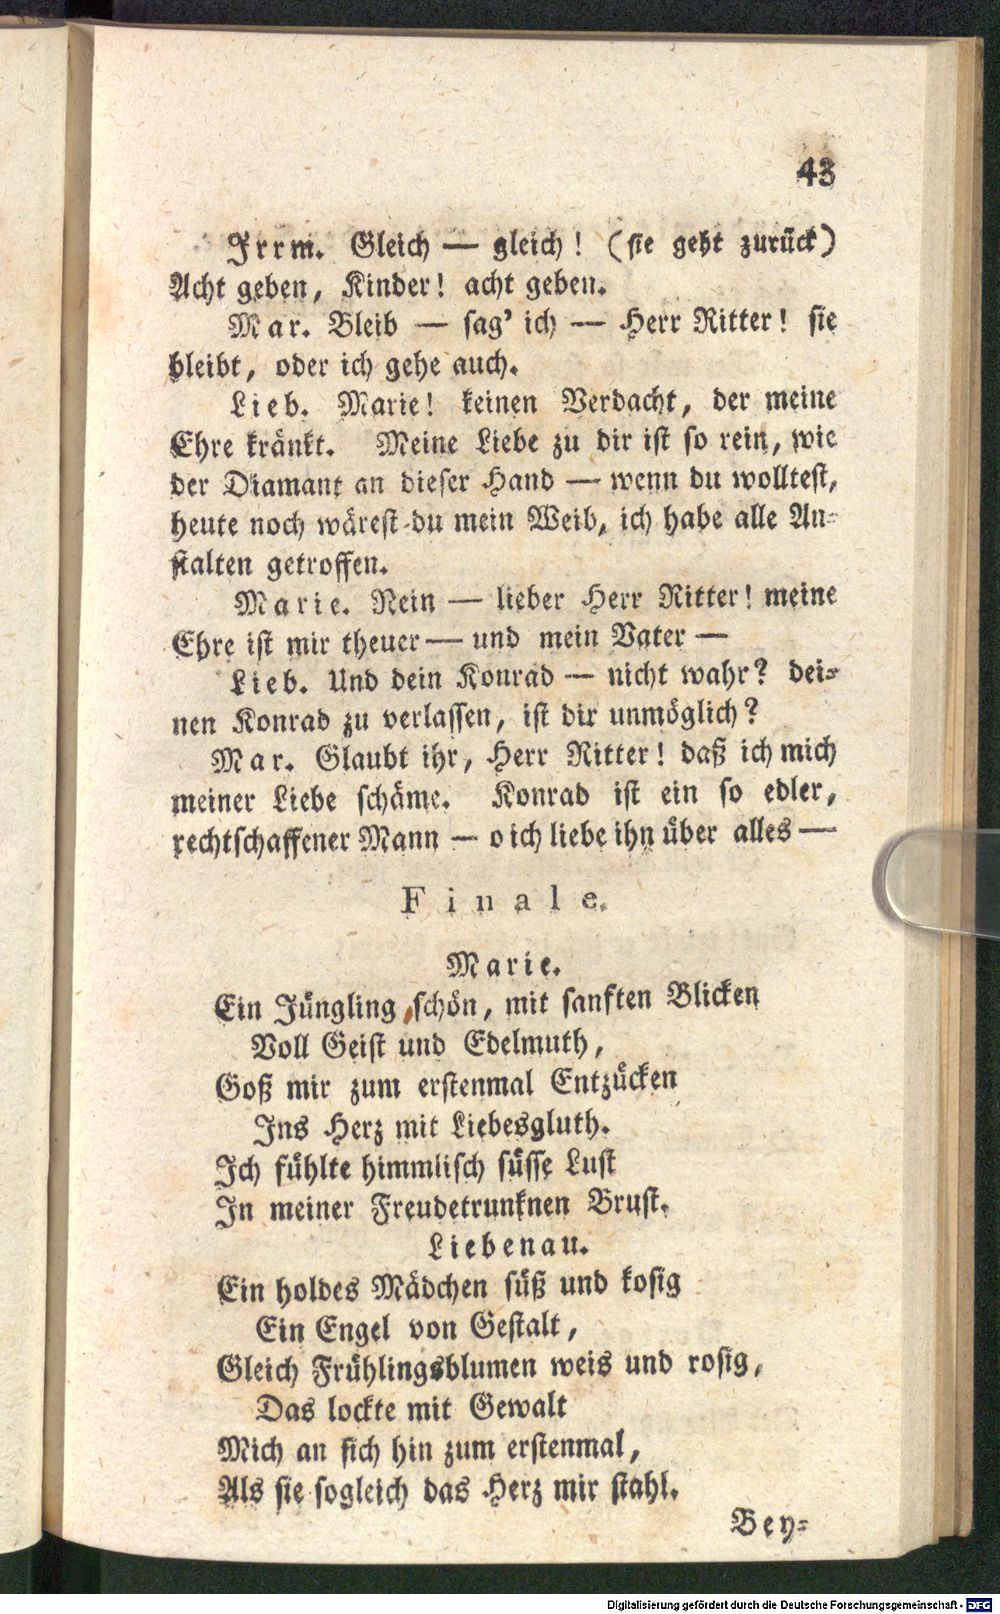 43
Irrm. Gleich — gleich! (sie geht zurück)
Acht geben, Kinder! acht geben.
Mar. Bleib — sag' ich — Herr Ritter! sie
bleibt, oder ich gehe auch.
Lieb. Marie! keinen Verdacht, der meine
Ehre kränkt. Meine Liebe zu dir ist so rein, wie
der Diamant an dieser Hand — wenn du wolltest,
heute noch wärest du mein Weib, ich habe alle An=
stalten getroffen.
Marie. Nein — lieber Herr Ritter! meine
Ehre ist mir theuer — und mein Vater —
Lieb. Und dein Konrad — nicht wahr? dei=
nen Konrad zu verlassen, ist dir unmöglich?
Mar. Glaubt ihr, Herr Ritter! daß ich mich
meiner Liebe schäme. Konrad ist ein so edler,
rechtschaffener Mann — o ich liebe ihn über alles —
Finale.
Marie.
Ein Jüngling schön, mit sanften Blicken
Voll Geist und Edelmuth,
Goß mir zum erstenmal Entzücken
Ins Herz mit Liebesgluth.
Ich fühlte himmlisch süsse Lust
In meiner Freudetrunknen Brust.
Liebenau.
Ein holdes Mädchen süß und kosig
Ein Engel von Gestalt,
Gleich Frühlingsblumen weis und rosig,
Das lockte mit Gewalt
Mich an sich hin zum erstenmal,
Als sie sogleich das Herz mir stahl.
Bey=
Digitalisierung gefördert durch die Deutsche Forschungsgemeinschaft - DFG